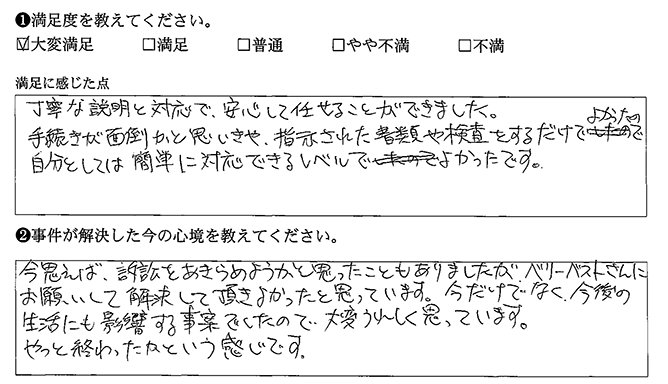 ❶満足度を教えてください。
☑大変満足 □満足 □普通 □やや不満 □不満
満足に感じた点
丁寧な説明と対応で、安心して任せることができました。
よかったの
手続きが面倒かと思いきや、指示された書類や検査をするだけで
自分としては簡単に対応できるレベルでよかったです。
❷事件が解決した今の心境を教えてください。
今思えば、訴訟をあきらめようかと思ったこともありましたが、ベリーベストさんに
お願いして解決して頂きよかったと思っています。今だけでなく、今後の
生活にも影響する事案でしたので、大変うれしく思っています。
やっと終わったかという感じです。